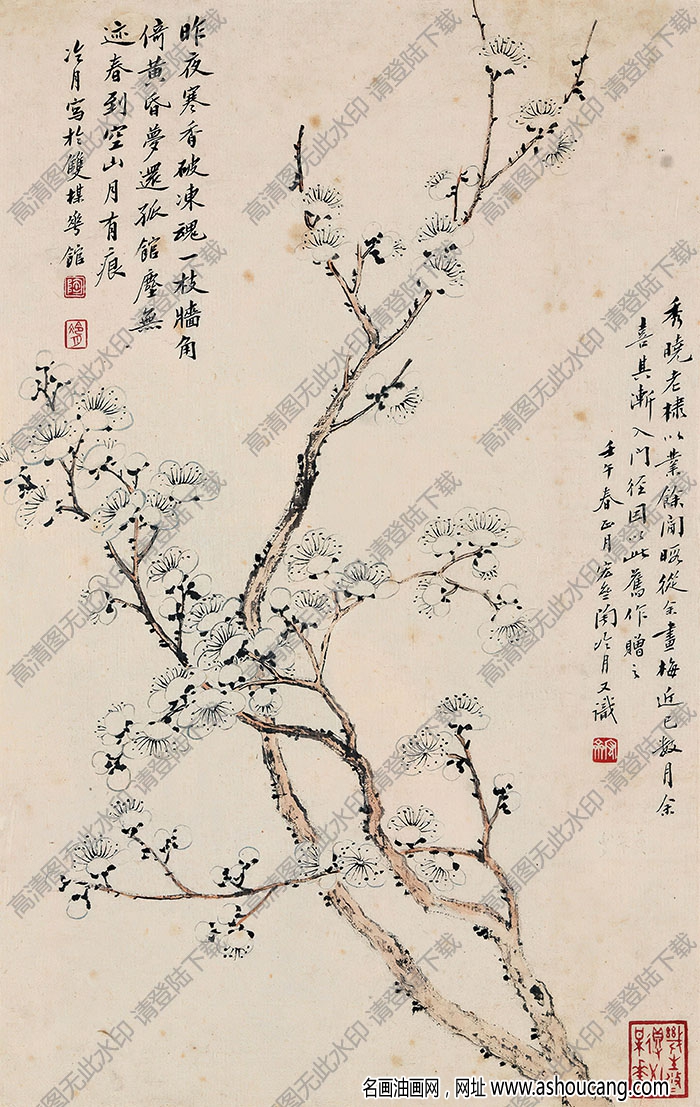 昨夜寒香破凍魂一枝牆角
倚黃昏夢還孤館塵無
迹春到空山月有痕
冷月寫於雙楳華館
秀曉老棣以業餘閒暇從余畫梅近已數月余
喜其漸入門徑因以此舊作贈之
壬午春正月宏斋陶冷月又識
高清图无此水印 请登陆下载
名画油画网，网址 www.ashoucang.com